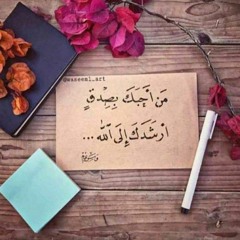 @waseem1_art
مَن أَحَبَّكَ بِصِدْقٍ
أَرْشَدَكَ إِلَى اللّٰه ...